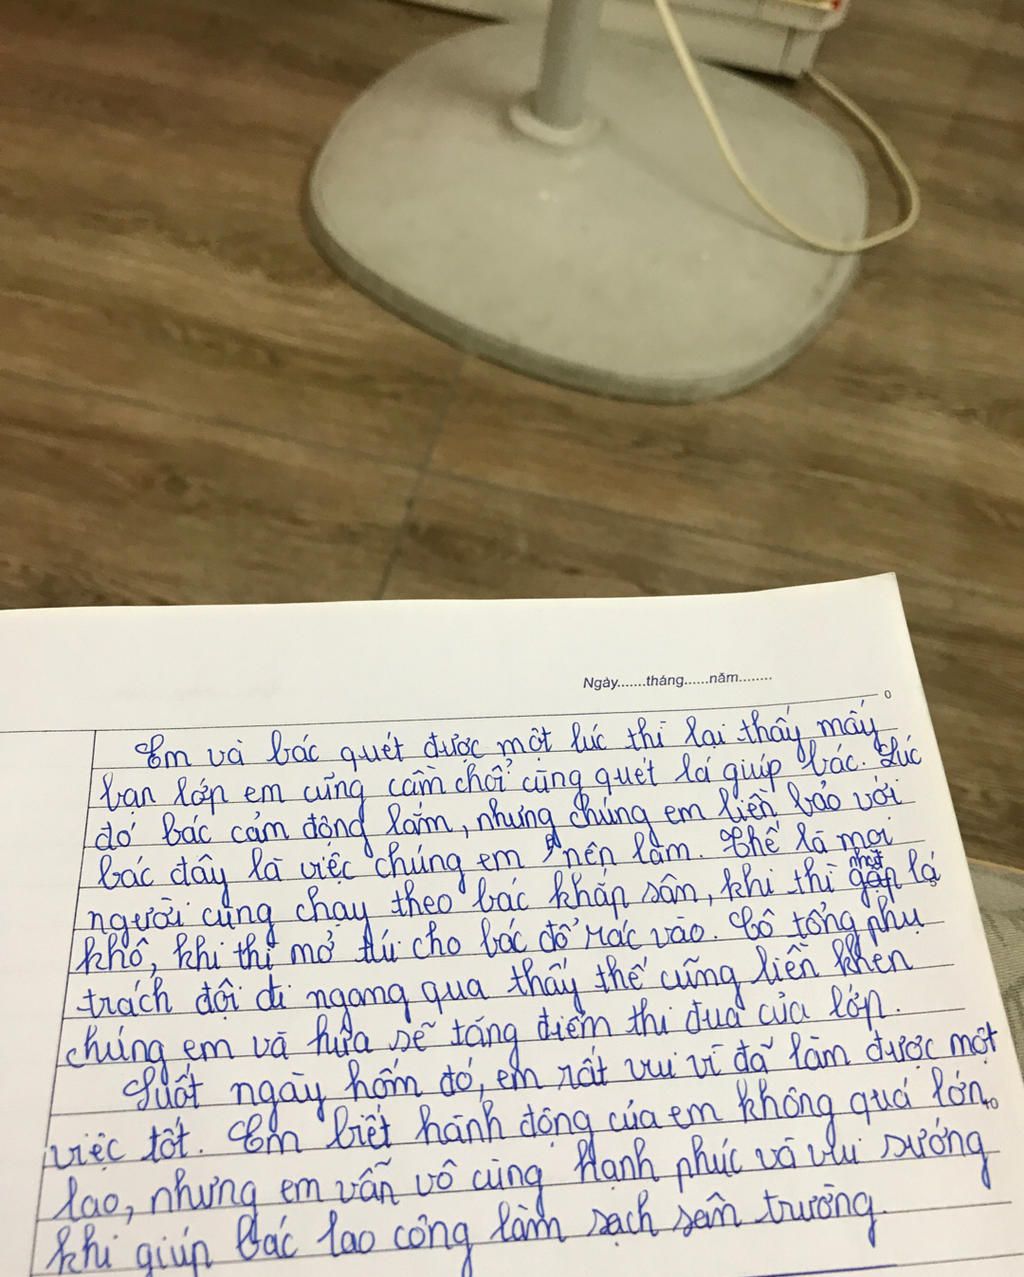 Ngày.......tháng......năm........
0
Em và bác quét được một lúc thì lại thấy mấy
bạn lớp em cũng cầm chổi cùng quét lá giúp bác. Lúc
đó bác cảm động lắm, nhưng chúng em liền bảo với
bác đây là việc chúng em nên làm. Thế là mọi
người cùng chạy theo bác khắp sân, khi thì gấp lá
nhặt
khô, khi thì mở túi cho bác đổ rác vào. Cô tổng phụ
trách đội đi ngang qua thấy thế cũng liền khen
chúng em và hứa sẽ tăng điểm thi đua của lớp.
Suốt ngày hôm đó, em rất vui vì đã làm được một
việc tốt. Em biết hành động của em không quá lớn
to
lao, nhưng em vẫn vô cùng hạnh phúc và vui sướng
khi giúp bác lao công làm sạch sân trường.